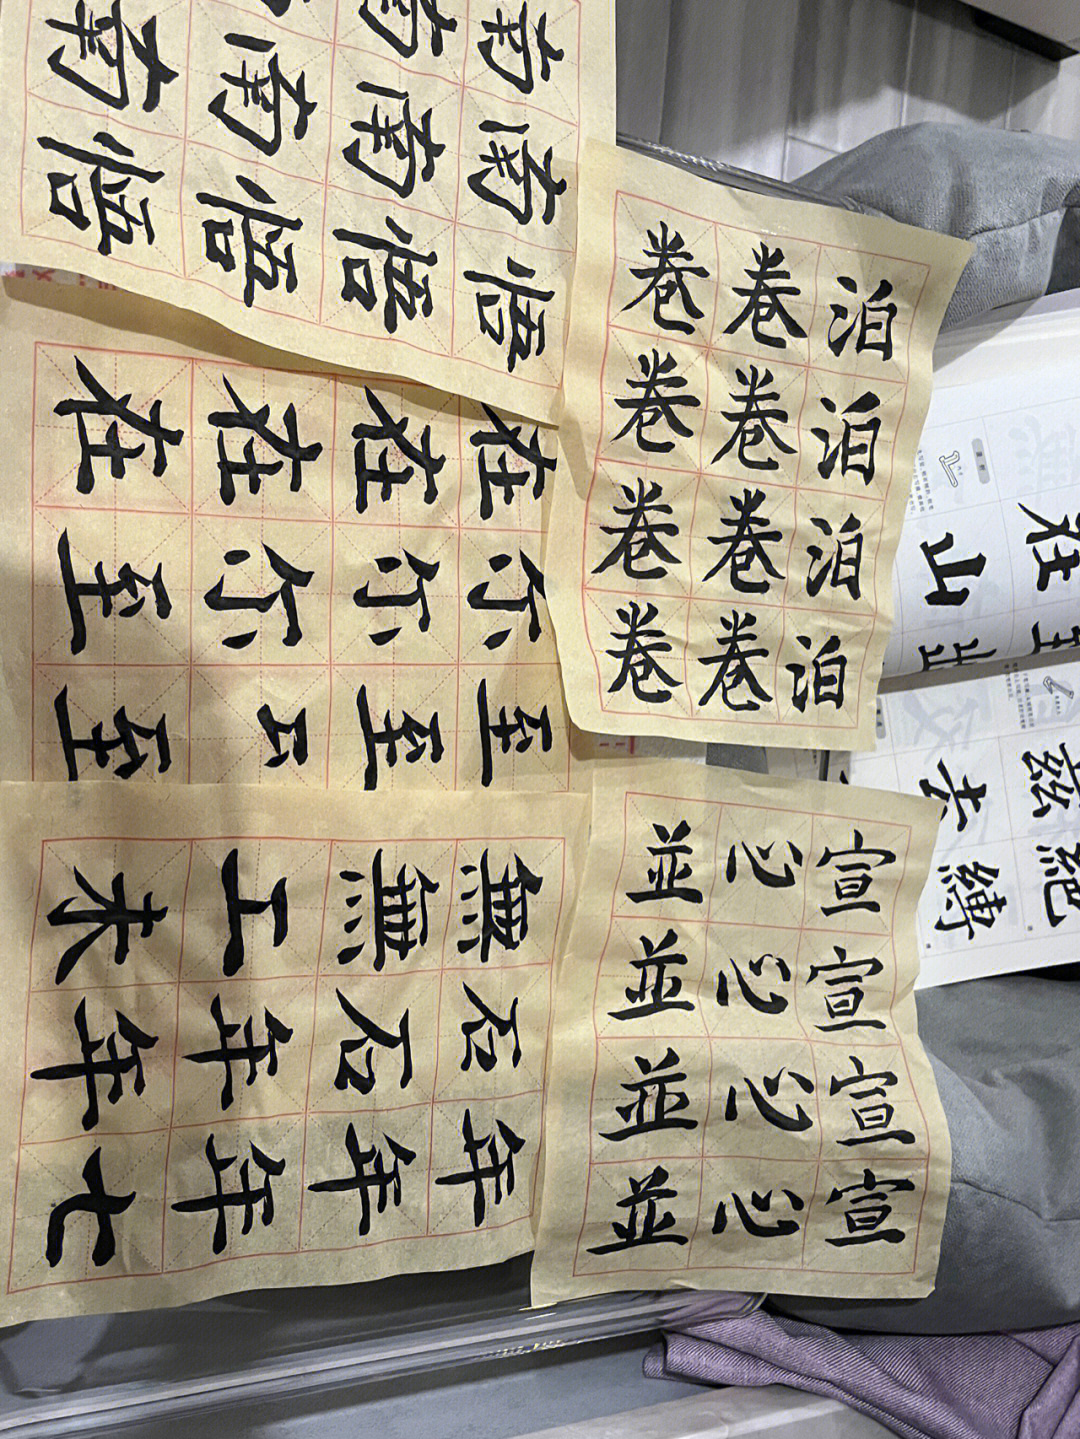 南南南南
南南南南
悟悟悟悟
卷卷泊
卷卷泊
卷卷泊
卷卷泊
在在在在
至尔尔尔
至至至
未工無無
年年石石
七年年年
並心宣
並心宣
並心宣
並心宣
山在
去茲
縛絕